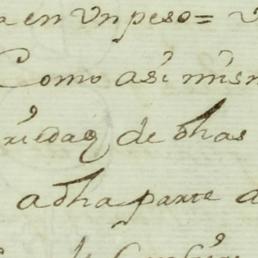 en Vn peso =
Como asi mism
riedad de dhas
a dha parte